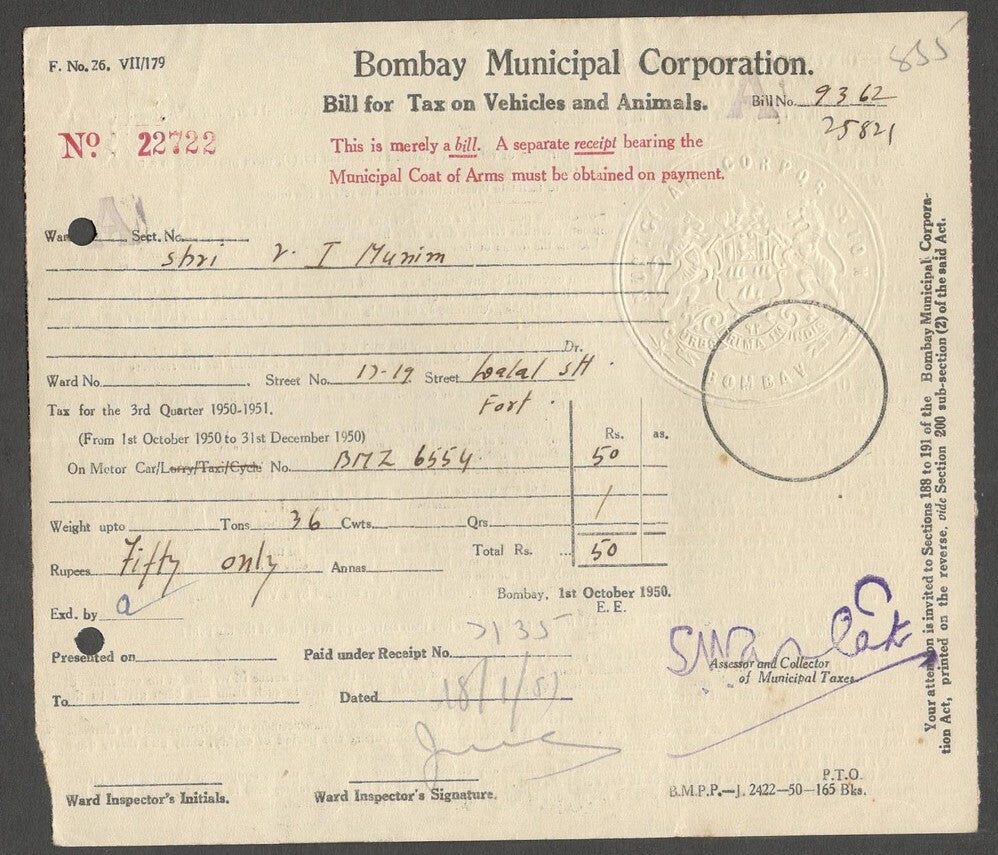 835
F. No. 26. VII/179
Bombay Municipal Corporation.
Bill for Tax on Vehicles and Animals.
Bill No. 9362
25821
Nº 22722
This is merely a bill. A separate receipt bearing the
Municipal Coat of Arms must be obtained on payment.
A
A
War Sect. No.
Shri V. I Munim
Dr.
Ward No. Street No. 17-19 Street Dalal St
Fort
Tax for the 3rd Quarter 1950-1951.
(From 1st October 1950 to 31st December 1950)
Rs. as.
On Motor Car/Lorry/Taxi/Cycle No. BMZ 6554 50
Weight upto Tons 36 Cwts. Qrs.
Total Rs. ... 50
Rupees Fifty only Annas
Bombay, 1st October 1950.
E. E.
Exd. by a
Presented on
Paid under Receipt No. 7135
Assessor and Collector
of Municipal Taxes.
To
Dated 18/1/51
Ward Inspector's Initials.
Ward Inspector's Signature.
P.T.O.
B.M.P.P.—J. 2422—50—165 Bks.
Your attention is invited to Sections 188 to 191 of the Bombay Municipal Corpora-
tion Act, printed on the reverse, vide Section 200 sub-section (2) of the said Act.
URBS PRIMA IN INDIS
BOMBAY